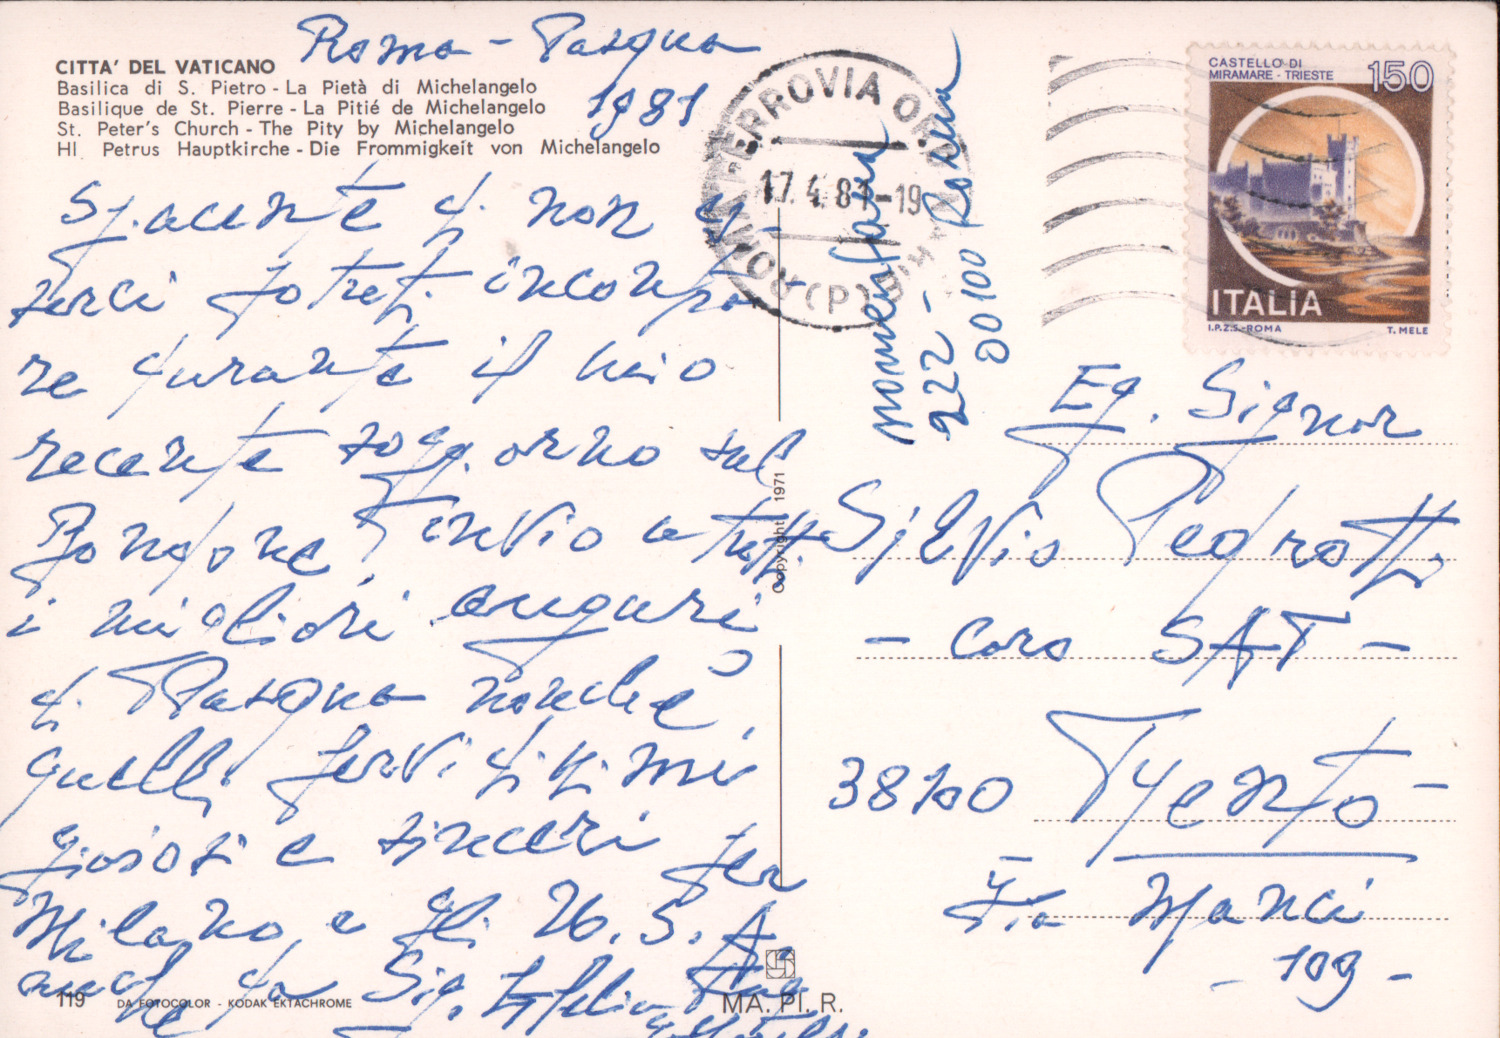 Roma - Pasqua
1981
CITTA' DEL VATICANO
Basilica di S. Pietro - La Pietà di Michelangelo
Basilique de St. Pierre - La Pitié de Michelangelo
St. Peter's Church - The Pity by Michelangelo
Hl. Petrus Hauptkirche - Die Frommigkeit von Michelangelo
Spiacente di non
potrei incontra
re durante il mio
recente soggiorno sul
Bondone, Invio a tutti
i migliori auguri
di Pasqua nonché
quelli fervidissimi
gioiosi e sinceri per
Milano, e gli U. S. A.
anche da Sig.
119 DA FOTOCOLOR - KODAK EKTACHROME
Copyright 1971
MA. PI. R.
ROMA FERROVIA
17.4.81-19
nomentana
222 -
00100 Roma
CASTELLO DI
MIRAMARE - TRIESTE
150
ITALIA
I.P.Z.S.-ROMA T. MELE
Eg. Signor
Silvio Pedrotti
- Coro SAT -
38100 Trento -
Via Manci
- 109 -